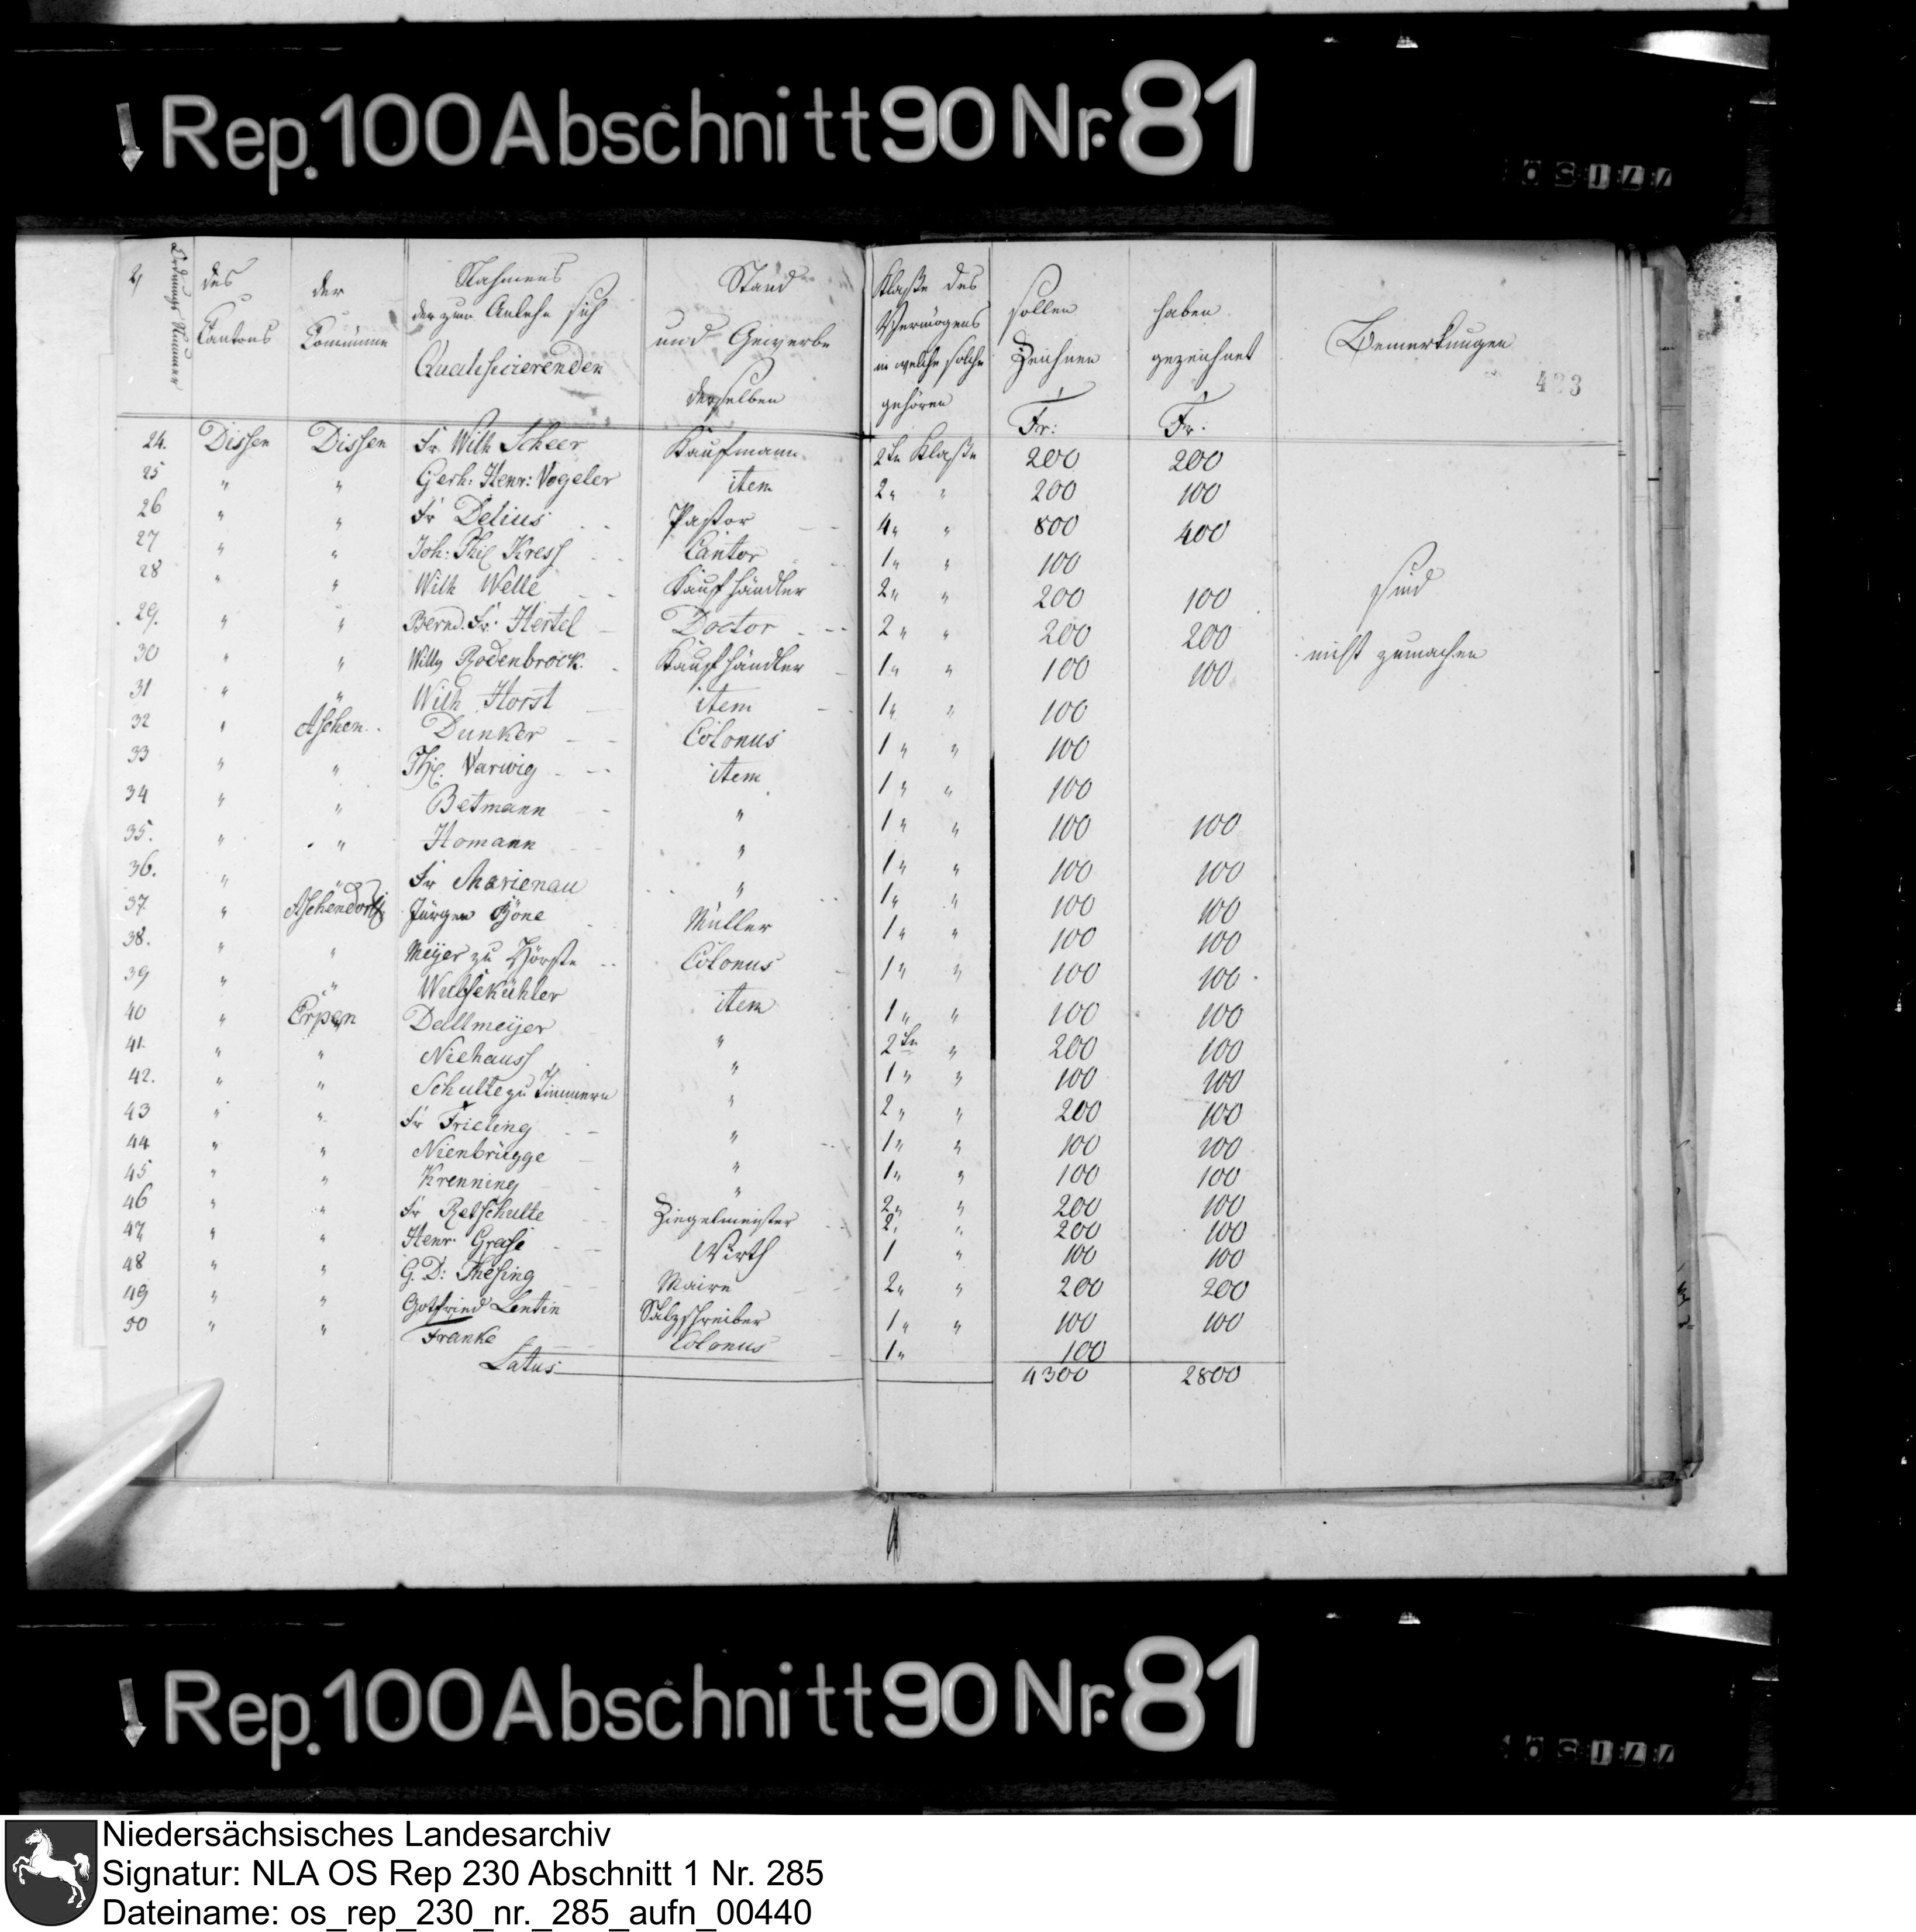 Rep. 100 Abschnitt 90 Nr. 81
2/
Ordnungs Nummer
des Cantons
der Commüne
Nahmens der zum Anlehn sich Qualificierenden
Stand und Gewerbe derselben
Klaße des Vermögens in welche solche gehören
sollen Zeichnen Fr:
haben gezeichnet Fr.
Bemerkungen
423
24. Dissen Dissen Fr Wilh Scheer Kaufmann 2te Klaße 200 200
25 " " Gerh: Henr: Vogeler item 2 " " 200 100
26 " " Fr Delius Pastor 4 " " 800 400
27 " " Joh: Phil Kress Cantor 1 " " 100
28 " " Wilh Welle Kaufhändler 2 " " 200 100 sind
29. " " Bernd. Fr. Hertel Doctor 2 " " 200 200
30 " " Willh Rodenbrock Kaufhändler 1 " " 100 100 nicht zumachen
31 " " Wilh Horst item 1 " " 100
32 " Aschen Dunker Colonus 1 " " 100
33 " " Phil. Varwig item 1 " " 100
34 " " Betmann " 1 " " 100 100
35. " " Homann " 1 " " 100 100
36. " " Fr Marienau " 1 " " 100 100
37 " Aschendorf Jürgen Höne Müller 1 " " 100 100
38. " " Meijer zu Hörste Colonus 1 " " 100 100
39 " " Wulfekühler item 1 " " 100 100
40 " Erpen Dallmeijer " 2te " 200 100
41. " " Niehauss " 1 " " 100 100
42. " " Schulte zu Timmern " 2 " " 200 100
43 " " Fr Frieling " 1 " " 100 100
44 " " Nienbrügge " 1 " " 100 100
45 " " Krenning " 2 " " 200 100
46 " " Fr Retschulte Ziegelmeister 2 " " 200 100
47 " " Henr. Grase Wirth 1 " 100 100
48 " " G. D: Thesing Maire 2 " " 200 200
49 " " Gotfried Lentin Salzschreiber 1 " " 100 100
50 " " Franke Colonus 1 " 100
Latus 4300 2800
Rep. 100 Abschnitt 90 Nr. 81
Niedersächsisches Landesarchiv
Signatur: NLA OS Rep 230 Abschnitt 1 Nr. 285
Dateiname: os_rep_230_nr._285_aufn_00440